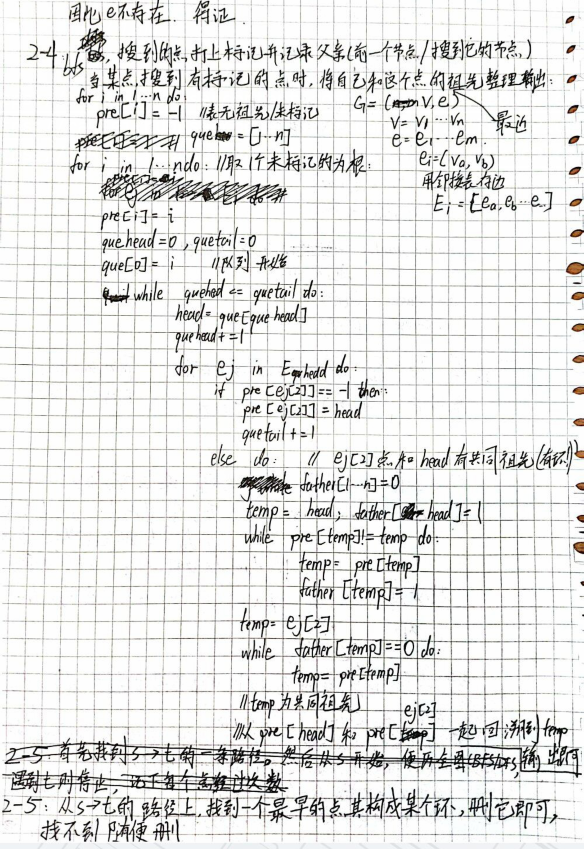 因此 e不存在. 得证.
2-4 bfs, 搜到的点打上标记并记录父亲(前一个节点/搜到它的节点)
当某点搜到有标记的点时, 将自己和这个点的祖先整理输出:
最近
for i in 1…n do: G= (v, e)
pre[i] = -1 //表无祖先/未标记 V= V₁…Vn
que = […n] e= e₁…em.
for i in 1…n do: //取1个未标记的为根: ei=(Va, Vb)
用邻接表存边
Ei=[ea, eb…e..]
pre[i]= i
quehead=0, quetail=0
que[0]= i //队列开始
while quehed <= quetail do:
head= que[quehead]
quehead+=1
for ej in Ehead do:
if pre[ej[2]]== -1 then:
pre[ej[2]]= head
quetail+=1
else do: // ej[2]点和head有共同祖先(有环)
father[1…n]=0
temp= head; father[head]=1
while pre[temp]!= temp do:
temp= pre[temp]
father[temp]= 1
temp= ej[2]
while father[temp]==0 do:
temp= pre[temp]
//temp为共同祖先
//从pre[head]和pre[ej[2]]一起回溯到temp
2-5: 首先找到s→t的一条路径。然后从s开始, 输出即可
遇到t则停止, 记下每个点经过次数
2-5: 从s→t的路径上, 找到一个最早的点其构成某个环, 删它即可,
找不到随便删